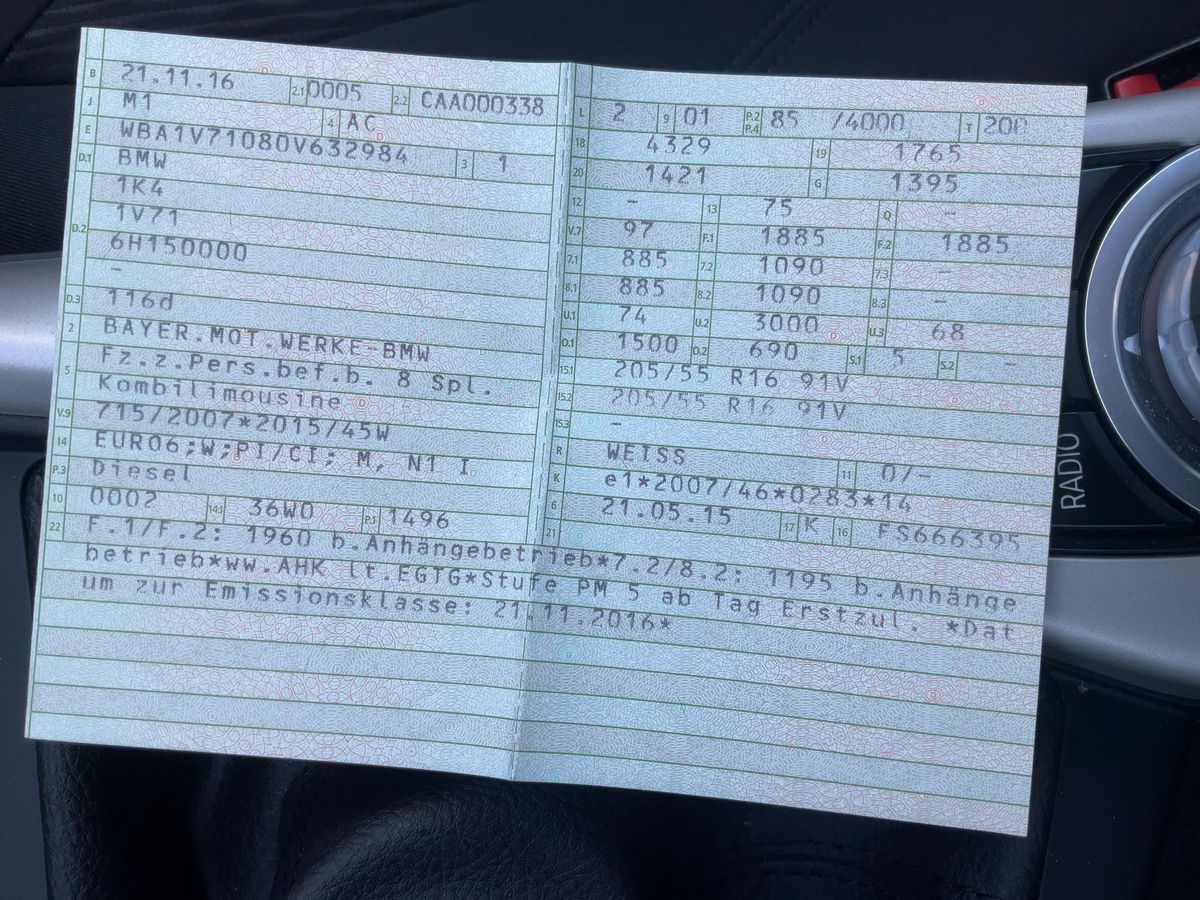 B 21.11.16 2.1 0005 2.2 CAA000338
J M1 4 AC
E WBA1V71080V632984 3 1
D.1 BMW
1K4
D.2 1V71
6H150000
-
D.3 116d
2 BAYER.MOT.WERKE-BMW
5 Fz.z.Pers.bef.b. 8 Spl.
Kombilimousine
V.9 715/2007*2015/45W
14 EURO6;W;PI/CI; M, N1 I
P.3 Diesel
10 0002 14.1 36W0 P.1 1496
L 2 9 01 P.2 P.4 85 /4000 T 200
18 4329 19 1765
20 1421 G 1395
12 - 13 75 Q -
V.7 97 F.1 1885 F.2 1885
7.1 885 7.2 1090 7.3 -
8.1 885 8.2 1090 8.3 -
U.1 74 U.2 3000 U.3 68
O.1 1500 O.2 690 S.1 5 S.2 -
15.1 205/55 R16 91V
15.2 205/55 R16 91V
15.3 -
R WEISS 11 0/-
K e1*2007/46*0283*14
6 21.05.15 17 K 16 FS666395
21
22 F.1/F.2: 1960 b.Anhängebetrieb*7.2/8.2: 1195 b.Anhänge
betrieb*ww.AHK lt.EGTG*Stufe PM 5 ab Tag Erstzul. *Dat
um zur Emissionsklasse: 21.11.2016*
RADIO